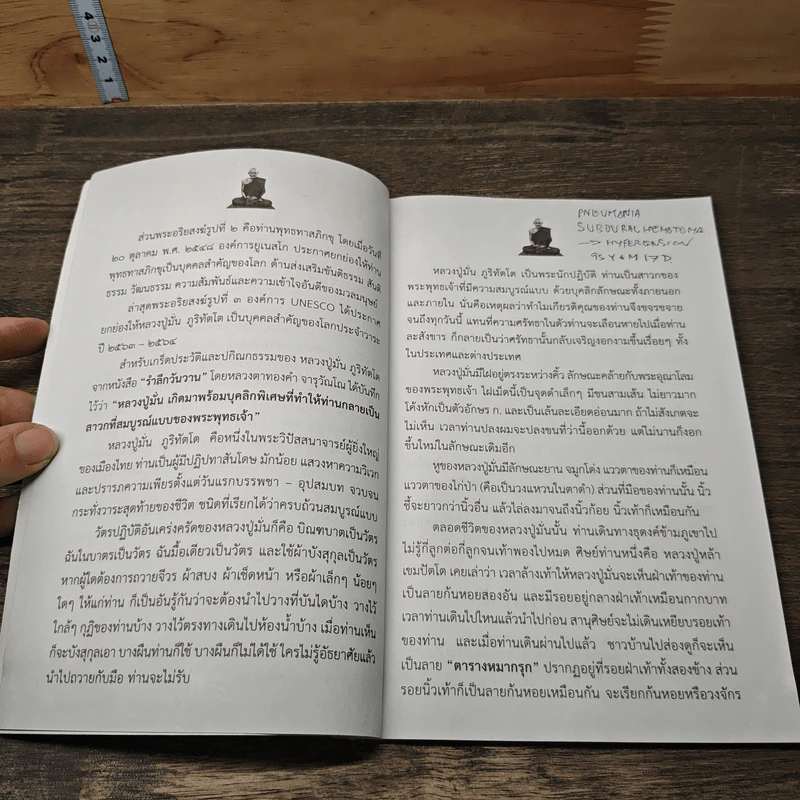 4 3 2 1
ส่วนพระอริยสงฆ์รูปที่ ๒ คือท่านพุทธทาสภิกขุ โดยเมื่อวันที่
๒๐ ตุลาคม พ.ศ. ๒๕๔๘ องค์การยูเนสโก ประกาศยกย่องให้ท่าน
พุทธทาสภิกขุเป็นบุคคลสำคัญของโลก ด้านส่งเสริมขันติธรรม สันติ
ธรรม วัฒนธรรม ความสัมพันธ์และความเข้าใจอันดีของมวลมนุษย์
ล่าสุดพระอริยสงฆ์รูปที่ ๓ องค์การ UNESCO ได้ประกาศ
ยกย่องให้หลวงปู่มั่น ภูริทัตโต เป็นบุคคลสำคัญของโลกประจำวาระ
ปี ๒๕๖๓ – ๒๕๖๔
สำหรับเกร็ดประวัติและปกิณกธรรมของ หลวงปู่มั่น ภูริทัตโต
จากหนังสือ “รำลึกวันวาน” โดยหลวงตาทองคำ จารุวัณโณ ได้บันทึก
ไว้ว่า “หลวงปู่มั่น เกิดมาพร้อมบุคลิกพิเศษที่ทำให้ท่านกลายเป็น
สาวกที่สมบูรณ์แบบของพระพุทธเจ้า”
หลวงปู่มั่น ภูริทัตโต คือหนึ่งในพระวิปัสสนาจารย์ผู้ยิ่งใหญ่
ของเมืองไทย ท่านเป็นผู้มีปฏิปทาสันโดษ มักน้อย แสวงหาความวิเวก
และปรารภความเพียรตั้งแต่วันแรกบรรพชา – อุปสมบท จวบจน
กระทั่งวาระสุดท้ายของชีวิต ชนิดที่เรียกได้ว่าครบถ้วนสมบูรณ์แบบ
วัตรปฏิบัติอันเคร่งครัดของหลวงปู่มั่นก็คือ บิณฑบาตเป็นวัตร
ฉันในบาตรเป็นวัตร ฉันมื้อเดียวเป็นวัตร และใช้ผ้าบังสุกุลเป็นวัตร
หากผู้ใดต้องการถวายจีวร ผ้าสบง ผ้าเช็ดหน้า หรือผ้าเล็กๆ น้อยๆ
ใดๆ ให้แก่ท่าน ก็เป็นอันรู้กันว่าจะต้องนำไปวางที่บันไดบ้าง วางไว้
ใกล้ๆ กุฏิของท่านบ้าง วางไว้ตรงทางเดินไปห้องน้ำบ้าง เมื่อท่านเห็น
ก็จะบังสุกุลเอา บางผืนท่านก็ใช้ บางผืนก็ไม่ได้ใช้ ใครไม่รู้อัธยาศัยแล้ว
นำไปถวายกับมือ ท่านจะไม่รับ
PNEUMANIA
SUBDURAL HEMATOMA
→ HYPERENSION
95 Y 4 M 17 D
หลวงปู่มั่น ภูริทัตโต เป็นพระนักปฏิบัติ ท่านเป็นสาวกของ
พระพุทธเจ้าที่มีความสมบูรณ์แบบ ด้วยบุคลิกลักษณะทั้งภายนอก
และภายใน นั่นคือเหตุผลว่าทำไมเกียรติคุณของท่านจึงขจรขจาย
จนถึงทุกวันนี้ แทนที่ความศรัทธาในตัวท่านจะเลือนหายไปเมื่อท่าน
ละสังขาร ก็กลายเป็นว่าศรัทธานั้นกลับเจริญงอกงามขึ้นเรื่อยๆ ทั้ง
ในประเทศและต่างประเทศ
หลวงปู่มั่นมีไฝอยู่ตรงระหว่างคิ้ว ลักษณะคล้ายกับพระอุณาโลม
ของพระพุทธเจ้า ไฝเม็ดนี้เป็นจุดดำเล็กๆ มีขนสามเส้น ไม่ยาวมาก
โค้งหักเป็นตัวอักษร ก. และเป็นเส้นละเอียดอ่อนมาก ถ้าไม่สังเกตจะ
ไม่เห็น เวลาท่านปลงผมจะปลงขนที่ว่านี้ออกด้วย แต่ไม่นานก็งอก
ขึ้นใหม่ในลักษณะเดิมอีก
หูของหลวงปู่มั่นมีลักษณะยาน จมูกโด่ง แววตาของท่านก็เหมือน
แววตาของไก่ป่า (คือเป็นวงแหวนในตาดำ) ส่วนที่มือของท่านนั้น นิ้ว
ชี้จะยาวกว่านิ้วอื่น แล้วไล่ลงมาจนถึงนิ้วก้อย นิ้วเท้าก็เหมือนกัน
ตลอดชีวิตของหลวงปู่มั่นนั้น ท่านเดินทางธุดงค์ข้ามภูเขาไป
ไม่รู้กี่ลูกต่อกี่ลูกจนเท้าพองไปหมด ศิษย์ท่านหนึ่งคือ หลวงปู่หล้า
เขมปัตโต เคยเล่าว่า เวลาล้างเท้าให้หลวงปู่มั่นจะเห็นฝ่าเท้าของท่าน
เป็นลายก้นหอยสองอัน และมีรอยอยู่กลางฝ่าเท้าเหมือนกากบาท
เวลาท่านเดินไปไหนแล้วนำไปก่อน สานุศิษย์จะไม่เดินเหยียบรอยเท้า
ของท่าน และเมื่อท่านเดินผ่านไปแล้ว ชาวบ้านไปส่องดูก็จะเห็น
เป็นลาย “ตารางหมากรุก” ปรากฏอยู่ที่รอยฝ่าเท้าทั้งสองข้าง ส่วน
รอยนิ้วเท้าก็เป็นลายก้นหอยเหมือนกัน จะเรียกก้นหอยหรือวงจักร